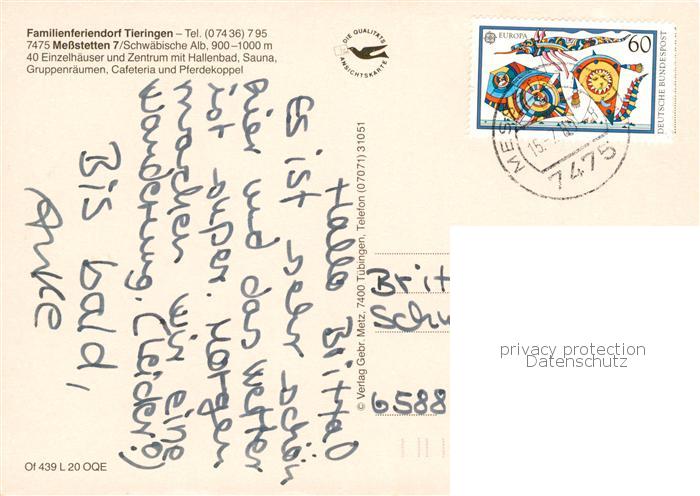 Familienferiendorf Tieringen – Tel. (0 74 36) 7 95
7475 Meßstetten 7/Schwäbische Alb, 900–1000 m
40 Einzelhäuser und Zentrum mit Hallenbad, Sauna,
Gruppenräumen, Cafeteria und Pferdekoppel
DIE QUALITÄTS
ANSICHTSKARTE
EUROPA 60
DEUTSCHE BUNDESPOST
MES
15.-7.
7475
Hallo Britta!
Es ist sehr schön
hier und das Wetter
ist super. Morgen
machen wir eine
Wanderung. (Leider!)
Bis bald,
Anke
© Verlag Gebr. Metz, 7400 Tübingen, Telefon (07071) 31051
Brit
Schu
6588
privacy protection
Datenschutz
Of 439 L 20 OQE